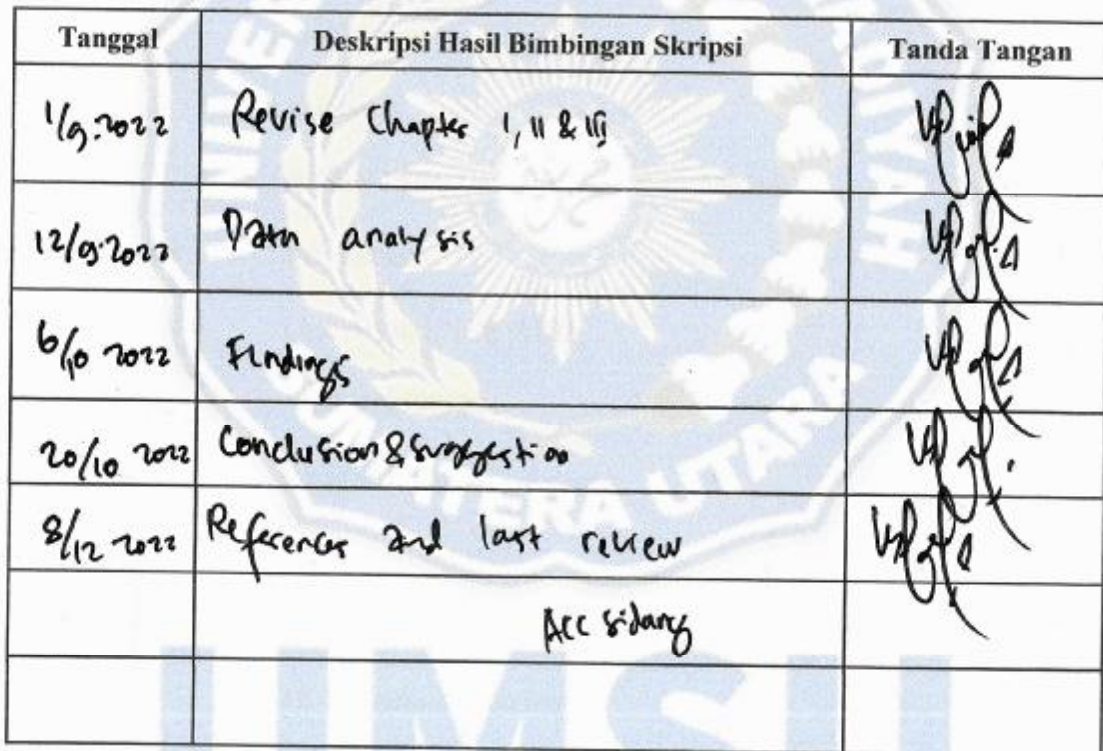 Tanggal Deskripsi Hasil Bimbingan Skripsi Tanda Tangan
1/9-2022 Revise Chapter I, II & III
12/9-2022 Data analysis
6/10 2022 Findings
20/10 2022 Conclusion & suggestion
8/12 2022 References and last review
Acc sidang
SUMATERA UTARA
UMSU